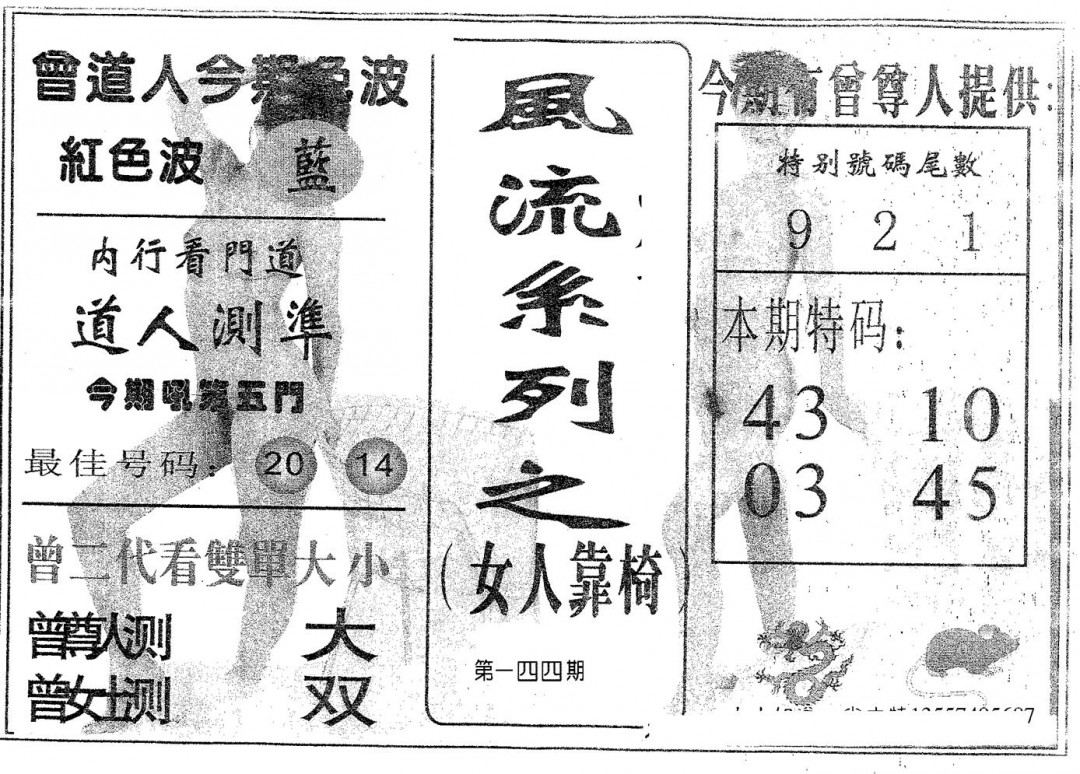 曾道人今期色波
紅色波 藍
内行看門道
道人測準
今期吼第五門
最佳号码： 20 14
曾二代看雙單大小
曾尊人测 大
曾女士测 双
風流系列之
（女人靠椅）
第一四四期
今期有曾尊人提供：
特别號碼尾數
9 2 1
本期特码：
43 10
03 45